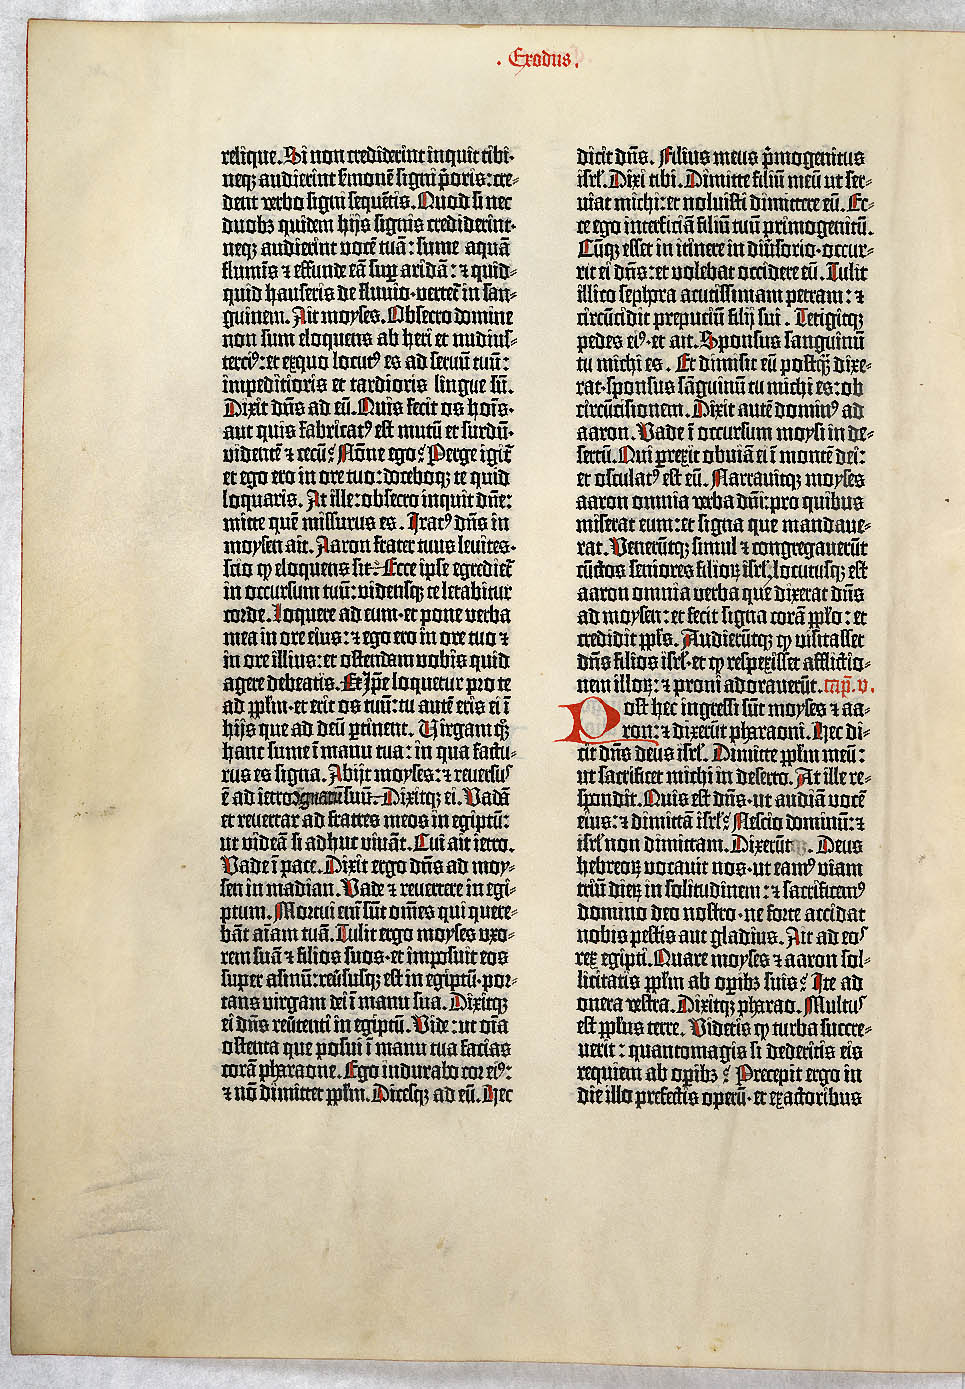 . Exodus .
relique. Si non crediderint inquit tibi·
neqꝫ audierint s̄monē signi p̄oris: cre-
dent verbo signi sequētis. Quod si nec
duobꝫ quidem hijs signis crediderint·
neqꝫ audierint vocē tuā: sume aquā
flumīs ⁊ effunde eā sup̄ aridā: ⁊ quid-
quid hauseris de fluuio·vertet̄ in san-
guinem. Ait moyses. Obsecro domine
non sum eloquens ab heri et nudius-
terciꝰ: et exquo locutꝰ es ad seruū tuū:
impeditioris et tardioris lingue sū.
Dixit dn̄s ad eū. Quis fecit os hoīs·
aut quis fabricatꝰ est mutū et surdū·
videntē ⁊ cecū? Nōne ego? Perge igit̄
et ego ero in ore tuo: doceboqꝫ te quid
loquaris. At ille: obsecro inquit dn̄e:
mitte quē missurus es. Iratꝰ dn̄s in
moysen ait. Aaron frater tuus leuites·
scio ꝙ eloquens sit: Ecce ipse egrediet̄
in occursum tuū: vidensqꝫ te letabitur
corde. Loquere ad eum·et pone verba
mea in ore eius: ⁊ ego ero in ore tuo ⁊
in ore illius: et ostendam vobis quid
agere debeatis. Et ip̄e loquetur pro te
ad pp̄lm·et erit os tuū: tu autē eris ei ī
hijs que ad deū ꝑtinent. Virgam qꝫ
hanc sume ī manu tua: in qua factu-
rus es signa. Abijt moyses: ⁊ reuersus
ē ad ietro cognatū suū. Dixitqꝫ ei. Vadā
et reuertar ad fratres meos in egiptū:
ut videā si adhuc viuāt. Cui ait ietro.
Vade ī pace. Dixit ergo dn̄s ad moy-
sen in madian. Vade ⁊ reuertere in egi-
ptum. Mortui eni̅ sūt om̄es qui quere-
bāt aīam tuā. Tulit ergo moyses vxo-
rem suā ⁊ filios suos·et imposuit eos
super asinū: reūsusqꝫ est in egiptū·por-
tans virgam dei ī manu sua. Dixitqꝫ
ei dn̄s reūtenti in egiptū. Vide: ut om̄a
ostenta que posui ī manu tua facias
corā pharaone. Ego indurabo cor eiꝰ:
⁊ nō dimittet pp̄lm. Dicesqꝫ ad eū. Hec
dicit dn̄s. Filius meus p̄mogenitus
isrl̄. Dixi tibi. Dimitte filiū meū ut ser-
uiat michi: et noluisti dimittere eū. Ec-
ce ego interficiā filiū tuū primogenitū.
Cūqꝫ esset in itinere in diūsorio·occur-
rit ei dn̄s: et volebat occidere eū. Tulit
illico sephora acutissimam petram: ⁊
circūcidit prepuciū filij sui . Tetigitqꝫ
pedes eiꝰ·et ait. Sponsus sanguinū
tu michi es. Et dimisit eū postqꝫ̄ dixe-
rat·sponsus sāguinū tu michi es: ob
circūcisionem. Dixit autē dominꝰ ad
aaron. Vade ī occursum moysi in de-
sertū. Qui ꝑrexit obuiā ei ī montē dei:
et osculatꝰ est eū. Narrauitqꝫ moyses
aaron omnia verba dn̄i: pro quibus
miserat eum: et signa que mandaue-
rat. Venerūtqꝫ simul ⁊ congregauerūt
cūctos seniores filioꝝ isrl̄: locutusqꝫ est
aaron omnia verba que dixerat dn̄s
ad moysen: et fecit signa corā pp̄lo: et
credidit pp̄ls. Audierūtqꝫ ꝙ visitasset
dn̄s filios isrl̄·et ꝙ respexisset afflictio-
nem illoꝝ: ⁊ proni adorauerūt. cap̄. v.
Post hec ingressi sūt moyses ⁊ aa-
ron: ⁊ dixerūt pharaoni. Hec di-
cit dn̄s deus isrl̄. Dimitte pp̄lm meū:
ut sacrificet michi in deserto. At ille re-
spondit. Quis est dn̄s·ut audiā vocē
eius: ⁊ dimittā isrl̄? Nescio dominū: ⁊
isrl̄ non dimittam. Dixerūt . Deus
hebreoꝝ vocauit nos·ut eamꝰ viam
triū dieꝝ in solitudinem: ⁊ sacrificemꝰ
domino deo nostro·ne forte accidat
nobis pestis aut gladius. Ait ad eos
rex egipti. Quare moyses ⁊ aaron sol-
licitatis pp̄lm ab oꝑibꝫ suis? Ite ad
onera vestra. Dixitqꝫ pharao. Multus
est pp̄lus terre. Videtis ꝙ turba succre-
uerit: quantomagis si dederitis eis
requiem ab oꝑibꝫ? Precepit ergo in
die illo prefectis operū·et exactoribus